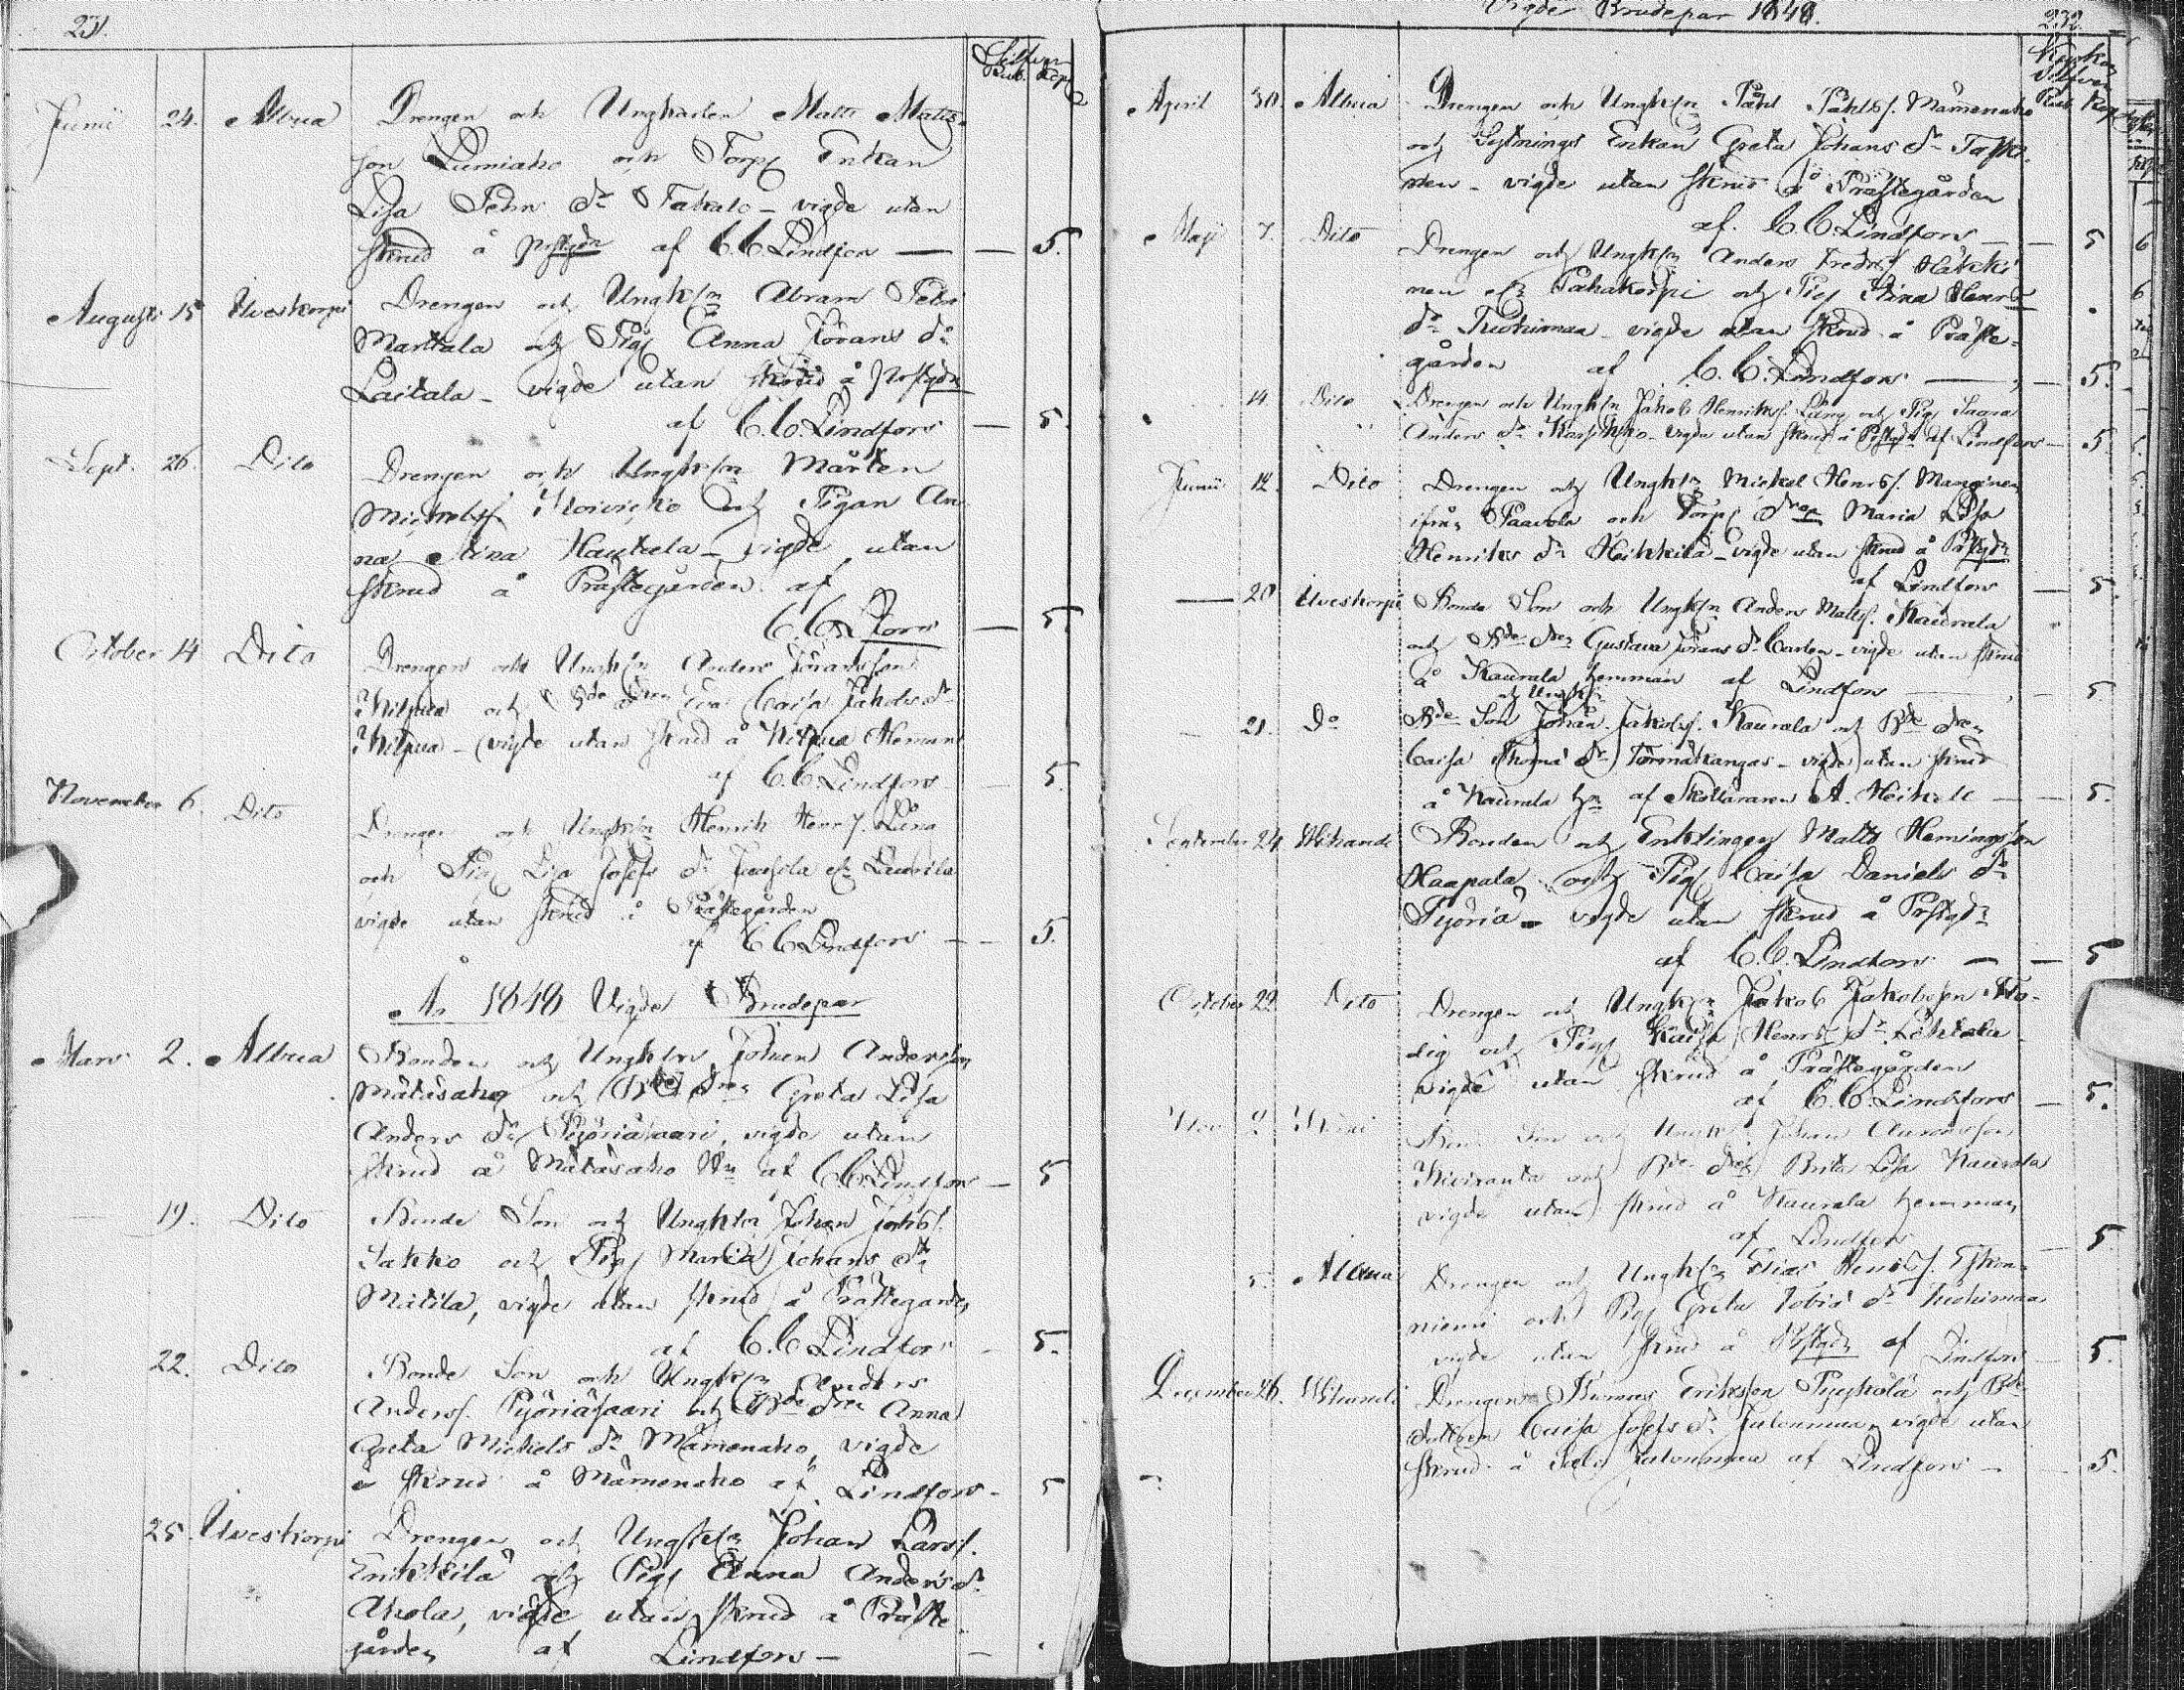 231.
Silfver
Rub. Kop.
Junii 24. Albua Drengen och Ungkarlen Matts Matts-
son Lumiaho och Torp Enkan
Lisa Pehrs dr Takalo - vigde utan
skrud å Prstgdn af C. C. Lindfors — — 5.
Augusti 15 Ilveskorpi Drengen och Ungkln Abram Petri
Marttala och Pig Anna Jörans dr
Laitala - vigde utan skrud å Prstgdn
af C. C. Lindfors — 5.
Sept. 26. Dito Drengen och Ungkln Mårten
Michelss och Pigan An
na Stina Hautala - vigde utan
skrud å Prästegården af
C. C. Lfors — 5.
October 14 Dito Drengen och Ungkln Anders Joransson
Kilpua och Bde dren Eva Caisa Jakobs dr
Kilpua - vigde utan skrud å Kilpua Heman
af C. C. Lindfors — 5.
November 6. Dito Drengen och Ungkln Henrik Henrs.
och Pig Lisa Josefs dr Laurila
vigde utan skrud å Prästegården
af C C Lindfors — — 5.
År 1848 Vigde Brudepar
Mars 2. Albua Bonden och Ungkln Johan Andersson
Mätäsaho och Bde dren Greta Lisa
Anders dr Pyöriäsaari, vigde utan
skrud å Mätäsaho Hn af C C Lindfors — 5
19. Dito Bonde Son och Ungkln Johan Johss.
Sakko och Pig Maria Johans dr
Matila, vigde utan skrud å Prästegården
af C. C Lindfors — 5.
22. Dito Bonde Son och Ungkln Anders
Anderss. Pyöriäsaari och Bde dren Anna
Greta Michels dr Mämmenaho, vigde
i skrud å Mämmenaho af Lindfors - 5
25. Ilveskorpi Drengen och Ungkln Johan Larss.
Erikkilä och Pig Anna Anders dr
Ahola, vigde utan skrud å Präste
gården af Lindfors —
Vigde Brudepar 1848.
232.
Kyrkan
Silfver
Rub Kop
April 30. Albua Drengen och Ungkln Påhl Påhlss. Mämmenaho
och Enkan Greta Johans dr
nen - vigde utan skrud å Prästegården
af. C C Lindfors — — 5
Maji 7. Dito Drengen och Ungkln Anders Fredrs Häkki
nen Pahakorpi och Pig Stina Henrs
dr Ruohimaa - vigde utan skrud å Präste-
gården af C. C. Lindfors — — 5.
14. Dito Drengen och Ungkln Jakob Henrikss. Lång och Pig Saara
Anders dr - vigde utan skrud å Prstgdn af Lindfors — 5.
Junii 12. Dito Drengen och Ungkln Mickel Henrss. Manninen
ifrån Paavola och Torp dren Maria Lisa
Henriks dr Heikkilä - vigde utan skrud å Prstgdn
af Lindfors — 5.
— 20 Ilveskorpi Bonde Son och Ungkln Anders Mattss. Kaurala
och Bde dren Gustava Jörans dr Carlen - vigde utan skrud
å Kaurala hemman af Lindfors — 5
och Ungkln
— 21. Do Bde Son Johan Jakobss. Kaurala och Bde dren
Caisa Thomæ dr Törmäkangas - vigde utan skrud
å Kaurala Hn af Skollären A. Heikell — — 5.
September 24. Vihandi Bonden och Enklingen Matts Hemingsson
Haapala och Pig Caisa Daniels dr
Pyöriä - vigde utan skrud å Prstgdn
af C. C. Lindfors — — 5
October 22. Dito Drengen och Ungkln Jakob Jakobsson Flo-
dig och Pig Kaisa Henrs dr Lehtola
vigde utan skrud å Prästegården
af C. C. Lindfors — 5.
Nov Son och Ungkln Johan
Kiviranta och Bde dren Brita Lisa Kaurala
vigde utan skrud å Kaurala hemman
af Lindfors — 5
5. Albua Drengen och Ungkln Elias Henrss.
niemi och Pig Greta Tobiæ dr Ruohimaa
vigde utan skrud å Prstgdn af Lindfors — 5.
December 26. Vihandi Drengen Thomas Eriksson Pyykölä och Bde
dottren Caisa Josefs dr Jylenmaa, vigde utan
skrud å Jylenmaa af Lindfors — — 5.